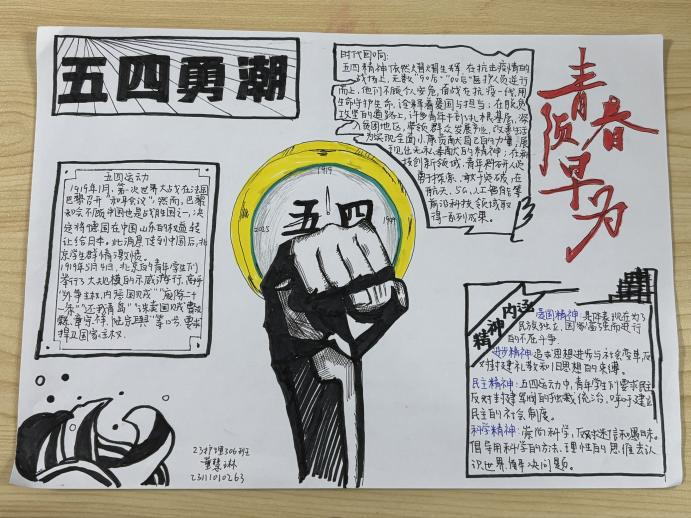 五四勇潮
时代回响:
五四精神依然熠熠生辉,在抗击疫情的
战场上,无数"90后""00后"医护人员逆行
而上,他们不顾个人安危,奋战在抗疫一线,用
生命守护生命,诠释着爱国与担当;在脱贫
攻坚的道路上,许多青年干部扎根基层,深
入贫困地区,带领群众发展产业,改善生活
为实现全面小康贡献自己的力量,展
现任无私奉献的精神;在科
技创新领域,青年科研人员
勇于探索、敢于突破,在
航天、5G、人工智能等
前沿科技领域取
得一系列成果。
青春
须早为
五四运动
1919年1月,第一次世界大战在法国
巴黎召开"和平会议"。然而,巴黎
和会不顾中国也是战胜国之一,决
定将德国在中国山东的权益转
让给日本。此消息传到中国后,北
京学生群情激愤。
1919年5月4日,北京的青年学生们
举行了大规模的示威游行,高呼
"外争主权,内除国贼""废除二十
一条""还我青岛""诛卖国贼曹汝
霖、章宗祥、陆宗舆"等口号,要求
捍卫国家主权。
1919
五四
2025
1949
精神内涵
爱国精神:具体表现在为了
民族独立、国家富强而进行
的不屈斗争。
进步精神:追求思想进步与社会变革,反
对封建礼教和旧思想的束缚。
民主精神:五四运动中,青年学生们要求民主
反对封建军阀的独裁统治,呼吁建立
民主的社会制度。
科学精神:崇尚科学,反对迷信和愚昧。
倡导用科学的方法、理性的思维去认
识世界、解决问题。
23护理306班
黄慧琳
23111010263